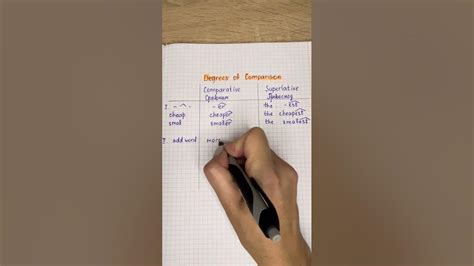 Degrees of Comparison
Comparative Superlative
- er the - est
cheap cheaper the cheapest
smal smaler the smalest
add word more